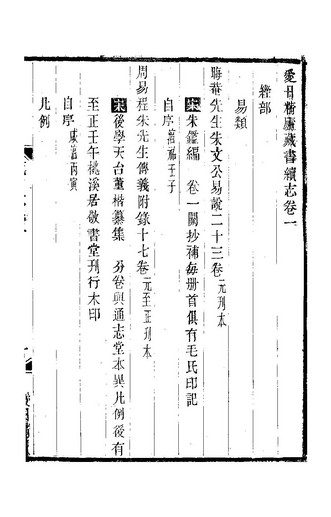 愛日精廬藏書續志卷一
經部
易類
晦菴先生朱文公易說二十三卷元刊本
宋朱鑑編　卷一闕抄補每册首俱有毛氏印記
自序淳祐壬子
周易程朱先生傳義附錄十七卷元至正刊本
宋後學天台董楷纂集　分卷與通志堂本異凡例後有
至正壬午桃溪居敬書堂刊行木印
自序咸淳丙寅
凡例